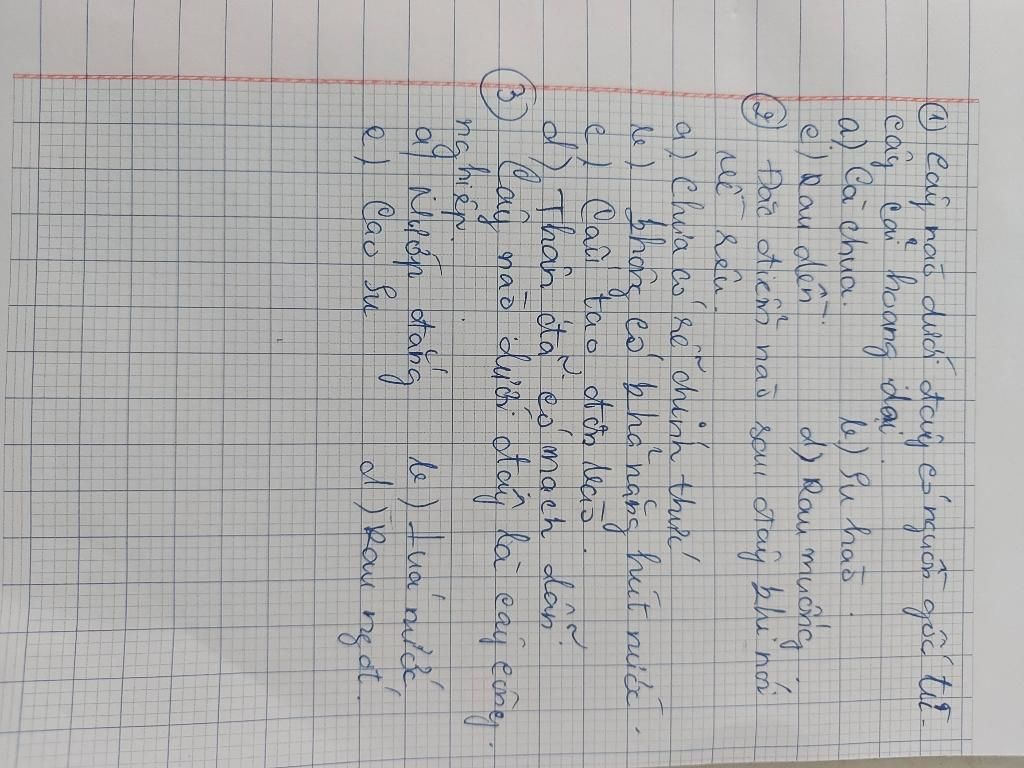 ① Cây nào dưới đây có nguồn gốc từ
cây cải hoang dại.
a) Cà chua. b) Su hào.
c) Rau dền. d) Rau muống.
② Đặc điểm nào sau đây khi nói
về rêu.
a) Chưa có rễ chính thức
b) Không có khả năng hút nước.
c) Cấu tạo đơn bào.
d) Thân đã có mạch dẫn.
③ Cây nào dưới đây là cây công
nghiệp.
a) Mướp đắng b) Lúa nước
c) Cao su d) Rau ngót.